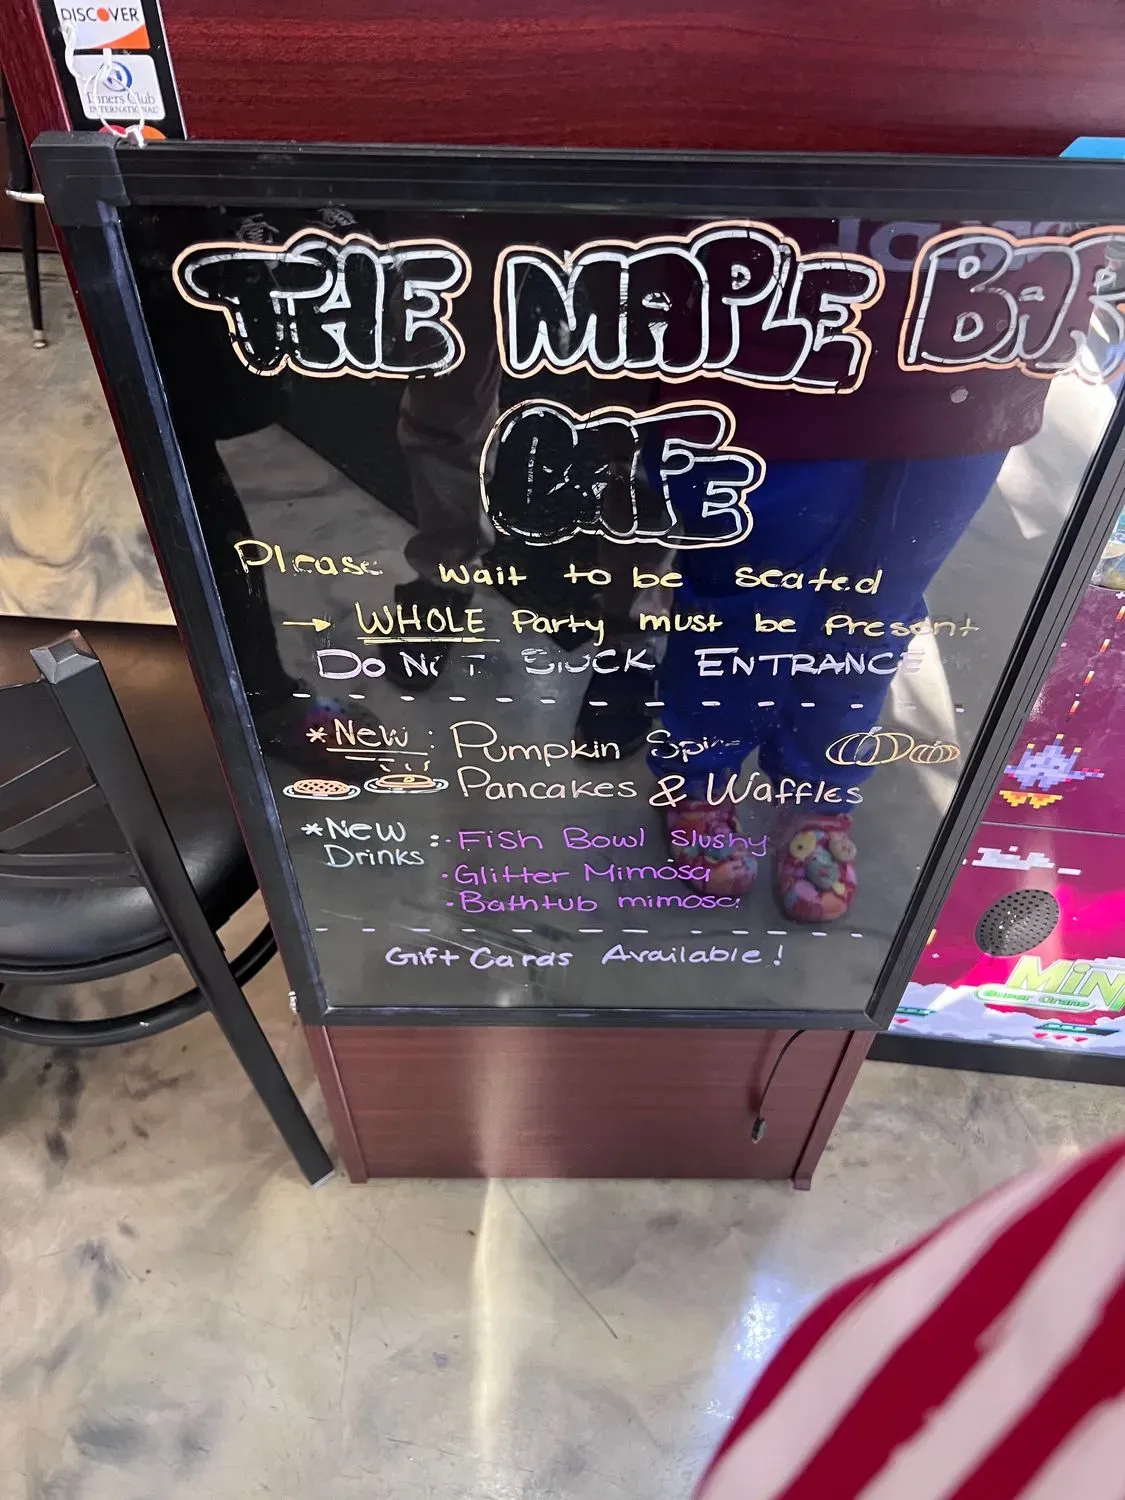 DISCOVER
Diners Club
INTERNATIONAL
THE MAPLE BAR
CAFE
Please wait to be seated
→ WHOLE Party must be Present
DO NOT BLOCK ENTRANCE
*New : Pumpkin Spice
Pancakes & Waffles
*New
Drinks : · Fish Bowl Slushy
· Glitter Mimosa
· Bathtub mimosa
Gift Cards Available!
MiNi
Super Crane